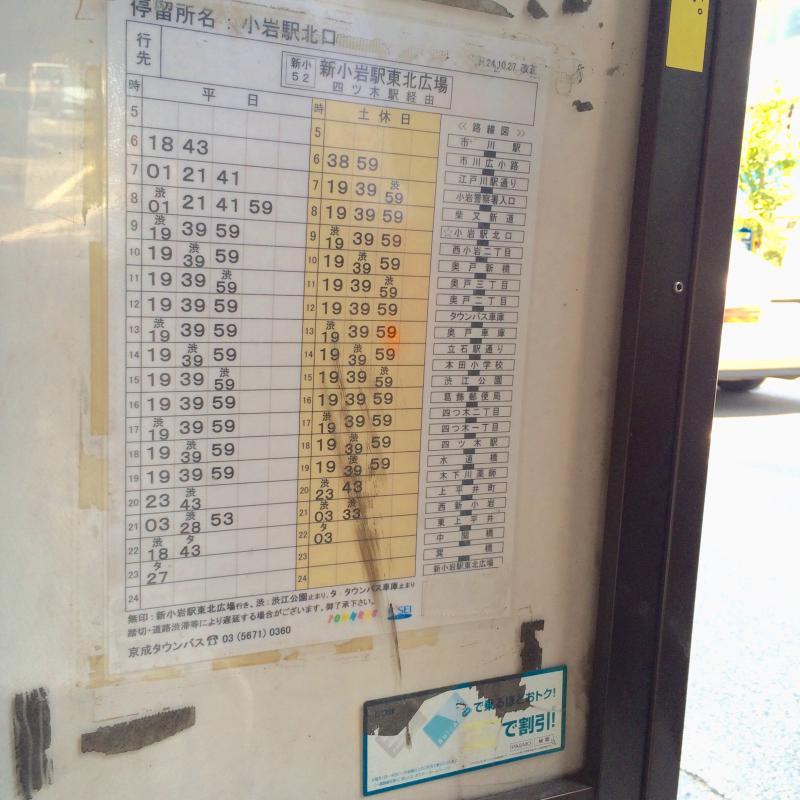 停留所名：小岩駅北口
H24.10.27 改正
行先
新小52
新小岩駅東北広場
四ツ木駅経由
時 平日
5
6 18 43
7 01 21 41
8 渋01 21 41 59
9 渋19 39 59
10 19 渋39 59
11 19 39 渋59
12 19 39 59
13 渋19 39 59
14 19 渋39 59
15 19 39 渋59
16 19 39 59
17 渋19 39 59
18 19 渋39 59
19 19 39 59
20 23 渋43
21 03 渋28 53
22 渋18 タ43
23 タ27
24
時 土休日
5
6 38 59
7 19 39 渋59
8 19 39 59
9 渋19 39 59
10 19 渋39 59
11 19 39 渋59
12 19 39 59
13 渋19 39 59
14 19 渋39 59
15 19 39 渋59
16 19 39 59
17 渋19 39 59
18 19 渋39 59
19 19 渋39 59
20 渋23 43
21 渋03 渋33
22 タ03
23
24
≪路線図≫
市川駅
市川広小路
江戸川駅通り
小岩警察署入口
柴又新道
☆小岩駅北口
西小岩二丁目
奥戸新橋
奥戸三丁目
奥戸二丁目
タウンバス車庫
奥戸車庫
立石駅通り
本田小学校
渋江公園
葛飾郵便局
四つ木二丁目
四つ木一丁目
四ツ木駅
水道橋
木下川薬師
上平井町
西新小岩
東上平井
中関橋
巽橋
新小岩駅東北広場
無印：新小岩駅東北広場行き、渋：渋江公園止まり、タ：タウンバス車庫止まり
踏切・道路渋滞等により遅延する場合がございます。御了承下さい。
京成タウンバス ☎ 03 (5671) 0360
で乗るほどおトク！
で割引！
PASMO